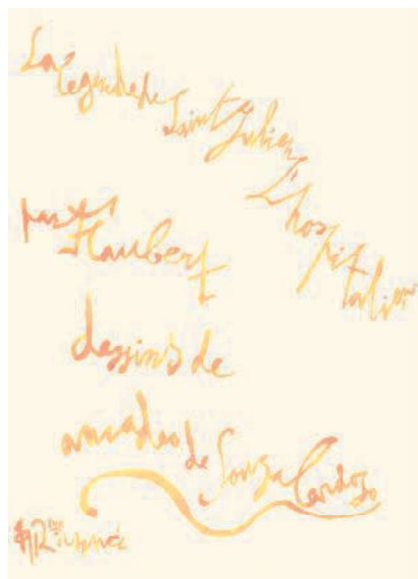 La légende de Saint Julien L'hospitalier
par Flaubert
dessins de
amadeo de Souza Cardoso